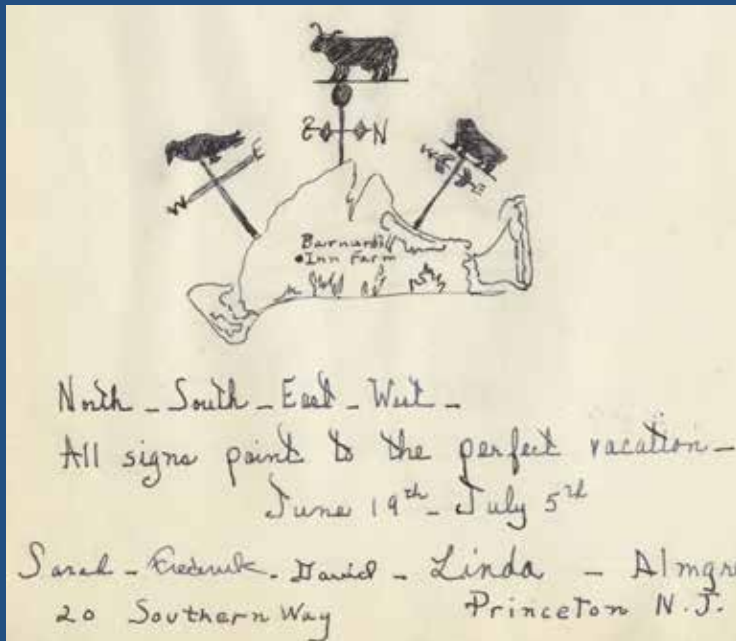 S N
E
W
W
E
Barnard's
Inn Farm
North - South - East - West -
All signs point to the perfect vacation -
June 19th - July 5th
Sarah - Frederick - David - Linda - Almgre
20 Southern Way Princeton N.J.